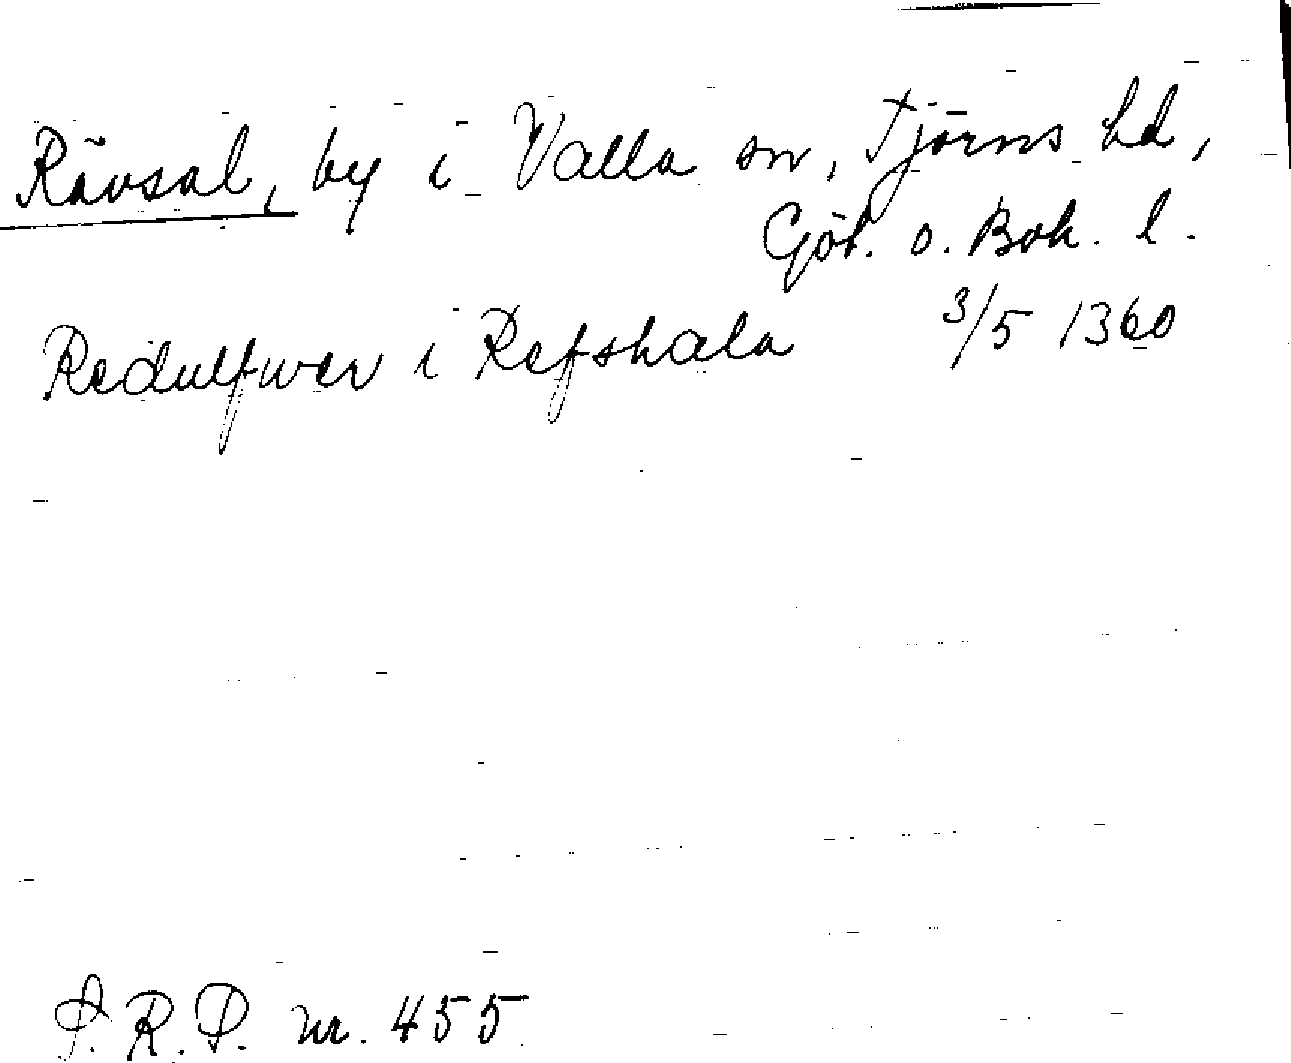 Rävsal, by i Valla sn, Tjörns hd,
Göt. o. Boh. l.
Redulfwer i Refshala 3/5 1360
S.R.P. nr. 455